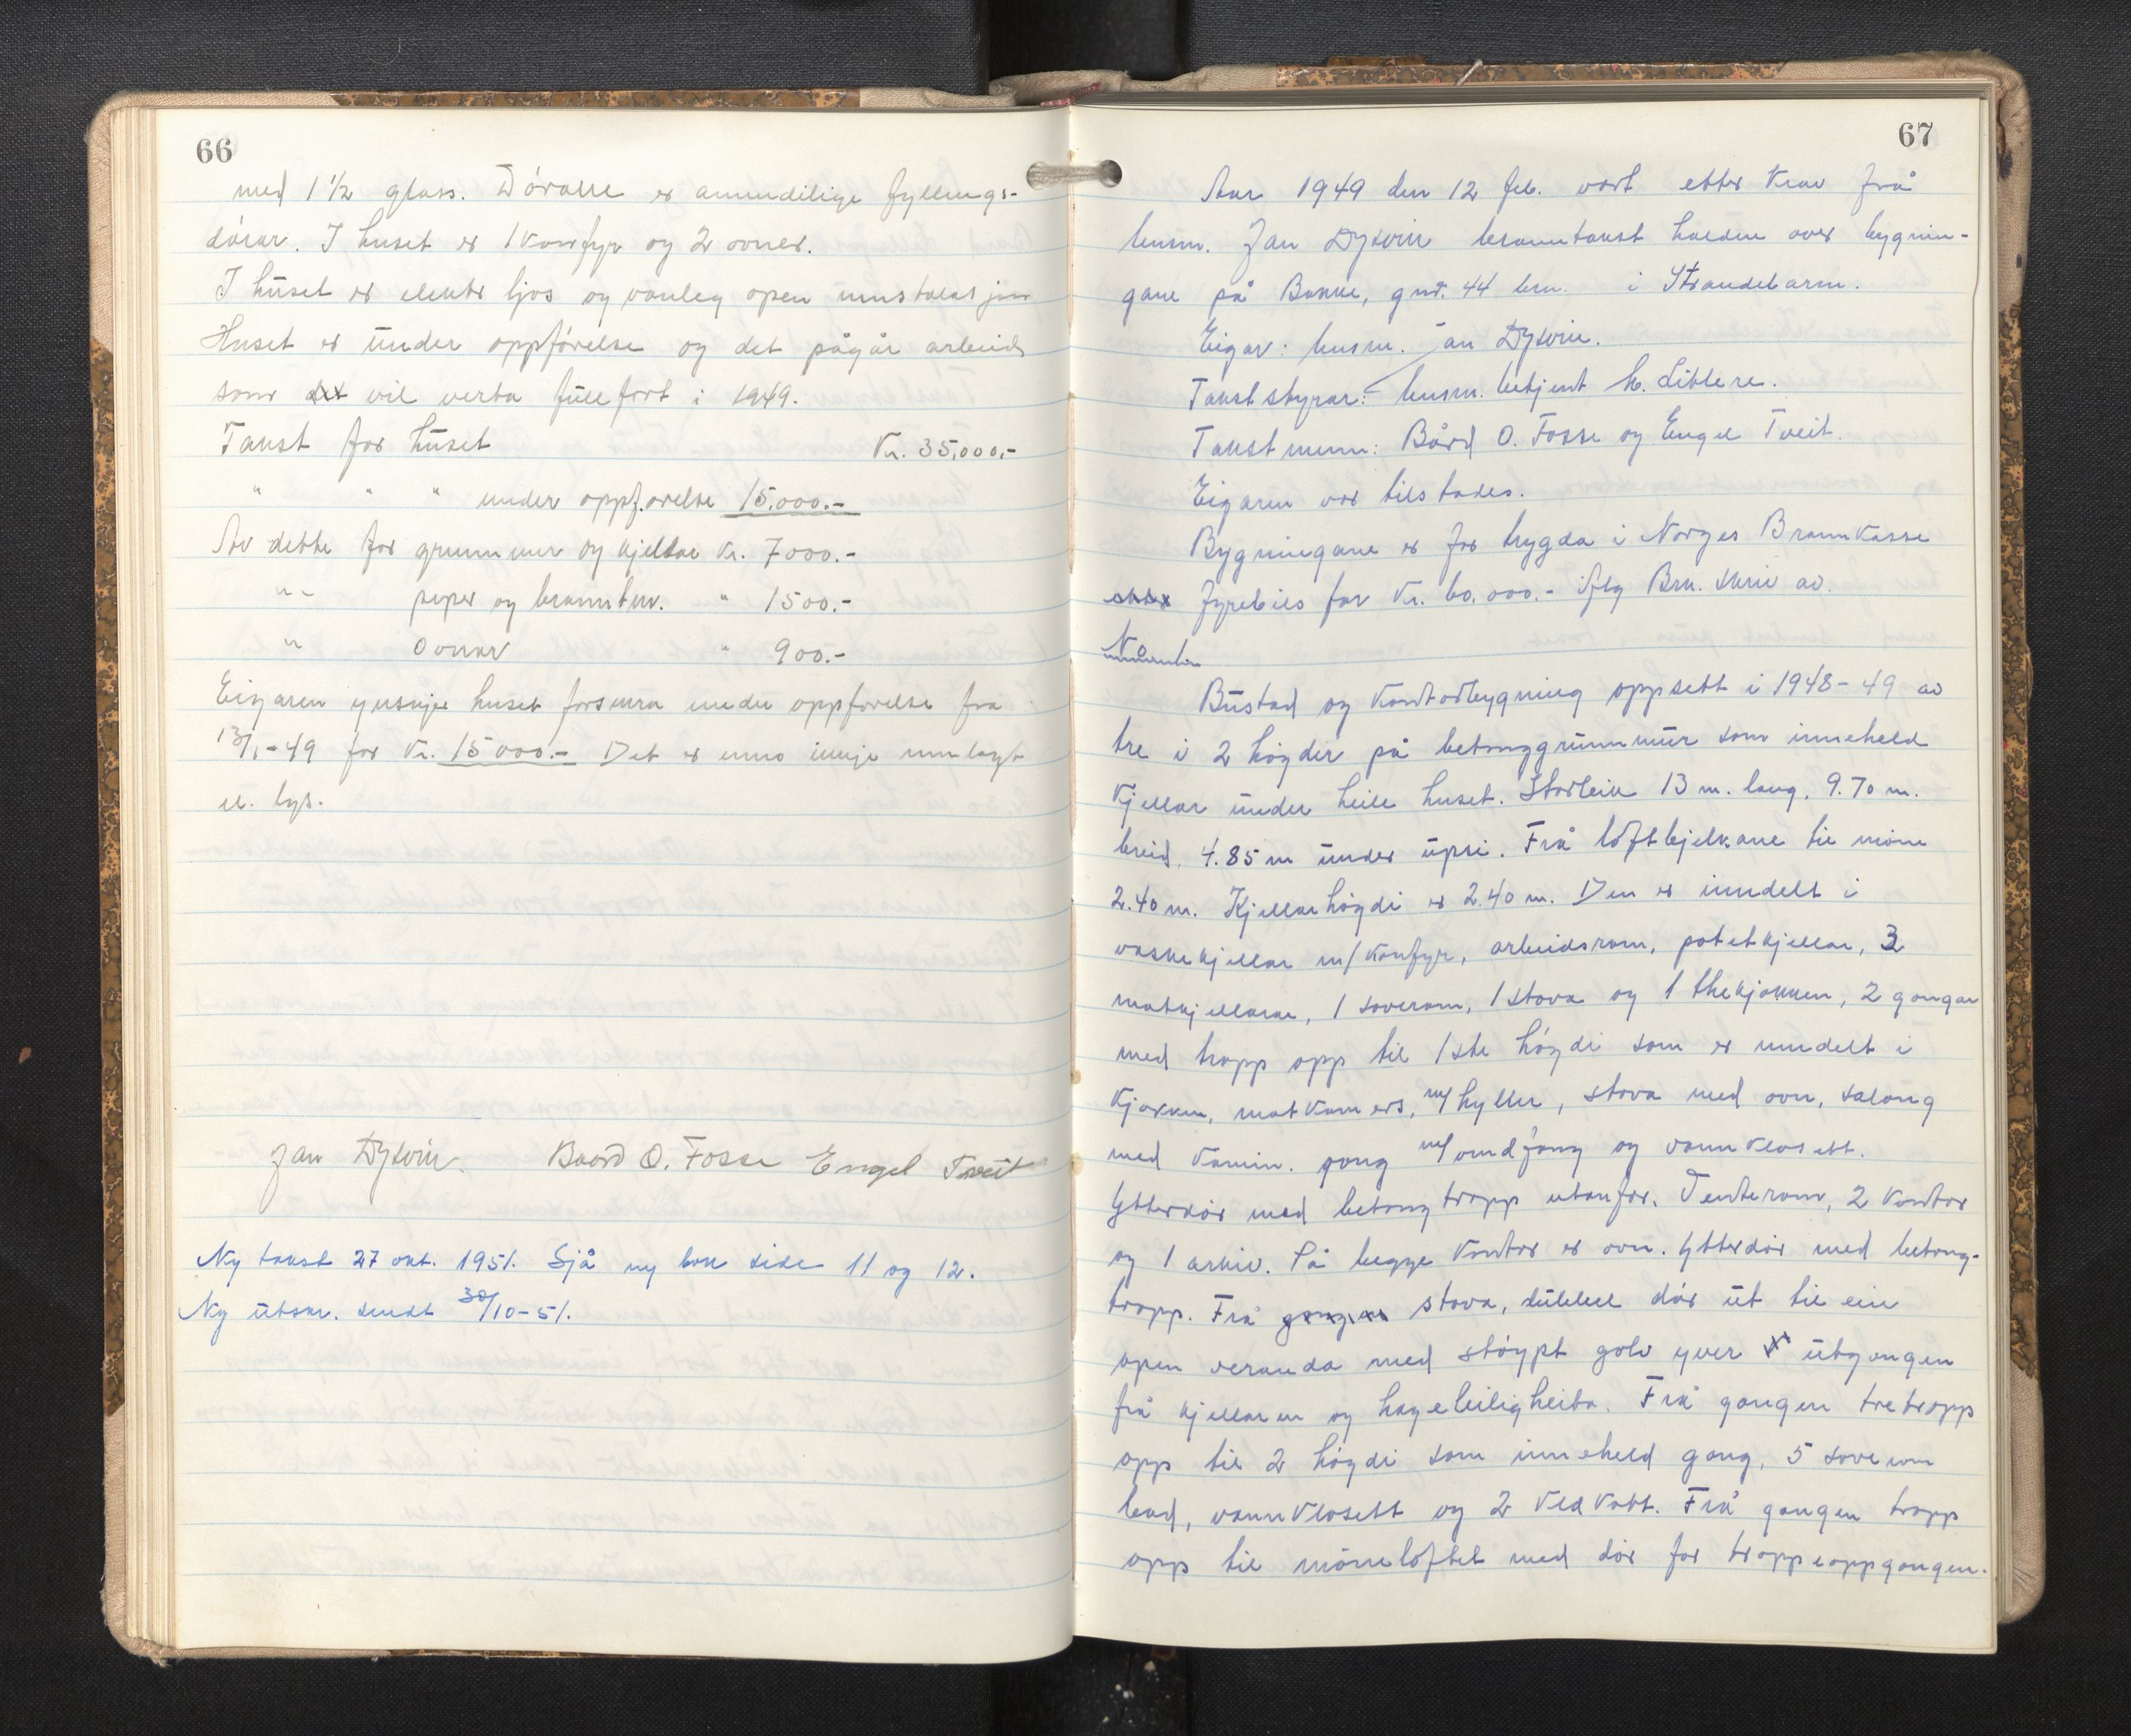 66
med 1 1/2 glass. Dörane er amindilige fyllings-
dörar. I huset er 1 komfyr og 2 ovner.
I huset er elektr ljos og vanleg open installasjon
Huset er under oppförelse og det pågår arbeid
som det vil verta fullfört i 1949.
Takst for huset Kr. 35,000.-
" " " under oppförelse 15.000.-
Av dette for grunnmur og kjellar Kr. 7000.-
" - piper og brannmur. " 1500.-
" Ovnar " 900.-
Eigaren ynskjer huset forsikra under oppförelse fra
13/1-49 for Kr. 15000.- Det er enno ikkje innlagt
el. lys.
Jan Dysvin. Baard O. Fosse Engel Tveit
Ny takst 27 okt. 1951. Sjå ny bok side 11 og 12.
Ny utskr. sendt 30/10-51.
67
Aar 1949 den 12 feb. vart etter krav frå
lensm. Jan Dysvin branntakst halden over bygnin-
gane på Bakke, gnr. 44 brn. i Strandebarm.
Eigar: lensm. Jan Dysvin.
Takststyrar: lensm. betjent H. Liblere.
Takstmenn: Bård O. Fosse og Engel Tveit.
Eigaren var tilstades.
Bygningane er for trygda i Norges Brannkasse
fyrebils for Kr. 60.000.- iflg Brk. skriv av.
No
Bustad og kontorbygning oppsett i 1948-49 av
tre i 2 högder på betonggrunnmur som inneheld
kjellar under heile huset. Storleik 13 m. lang, 9.70 m.
breid, 4.85 m under upsi. Frå loftbjelkane til möne
2.40 m. Kjellarhögdi er 2.40 m. Den er inndelt i
vaskekjellar m/komfyr, arbeidsrom, potetkjellar, 3
matkjellarar, 1 soverom, 1 stova og 1 thekjökken, 2 gongar
med tropp opp til 1ste högdi som er inndelt i
kjökken, matkamers, m/hyller, stova med ovn, salong
med kamin. gong m/vindfang og vannklosett.
Ytterdör med betongtropp utanfor. Venterom, 2 kontor
og 1 arkiv. På begge kontor er ovn. Ytterdör med betong-
tropp. Frå gongen stova, dubbel dör ut til ein
open veranda med stöypt golv yver utgongen
frå kjellaren og hageleiligheita. Frå gongen tretropp
opp til 2 högdi som inneheld gong, 5 soverom
bad, vannklosett og 2 kledkott. Frå gongen tropp
opp til möneloftet med dör for troppeoppgongen.